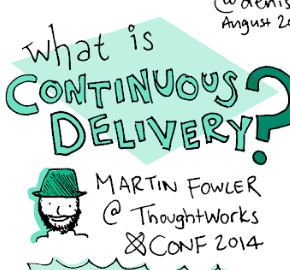 August 20
what is
CONTINUOUS
DELIVERY?
MARTIN FOWLER
@ ThoughtWorks
XCONF 2014